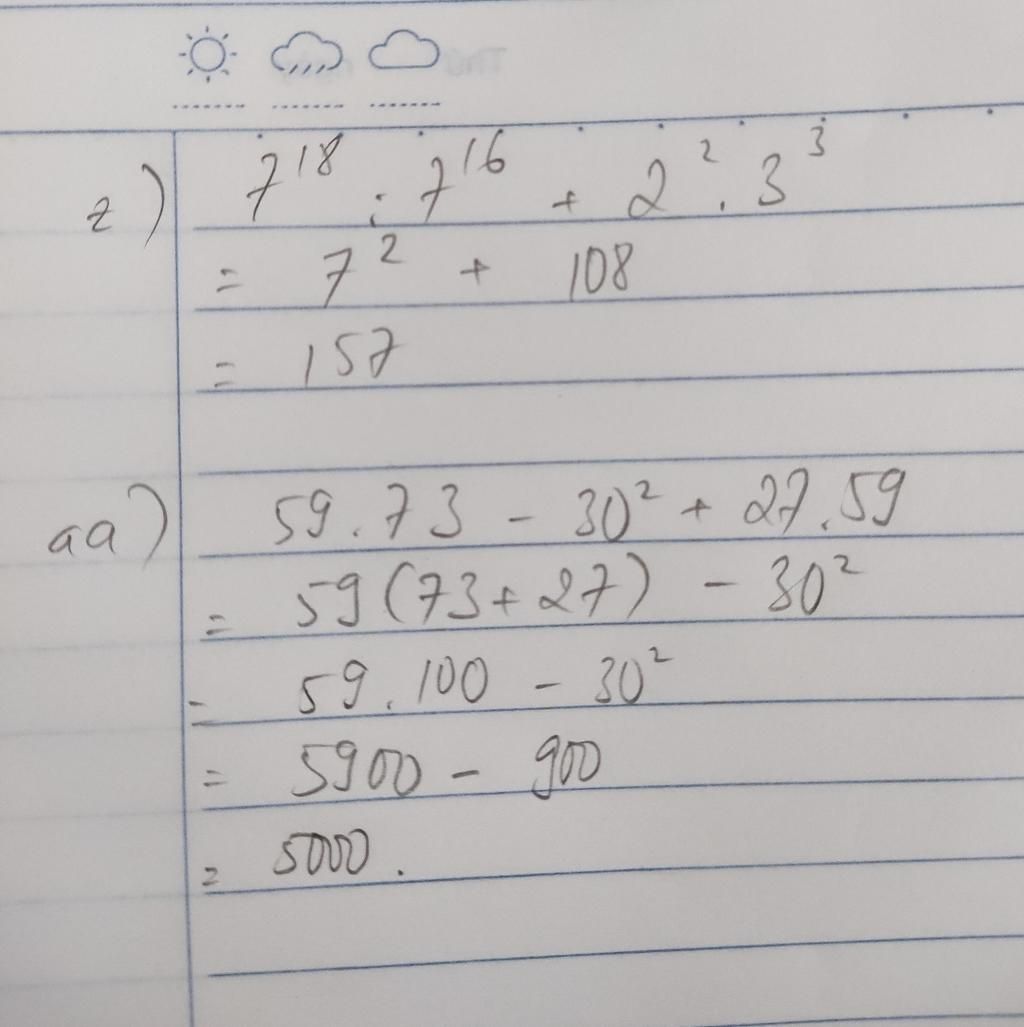 z) 7¹⁸ : 7¹⁶ + 2² . 3³
= 7² + 108
= 157
aa) 59 . 73 - 30² + 27 . 59
= 59 (73 + 27) - 30²
= 59 . 100 - 30²
= 5900 - 900
= 5000 .